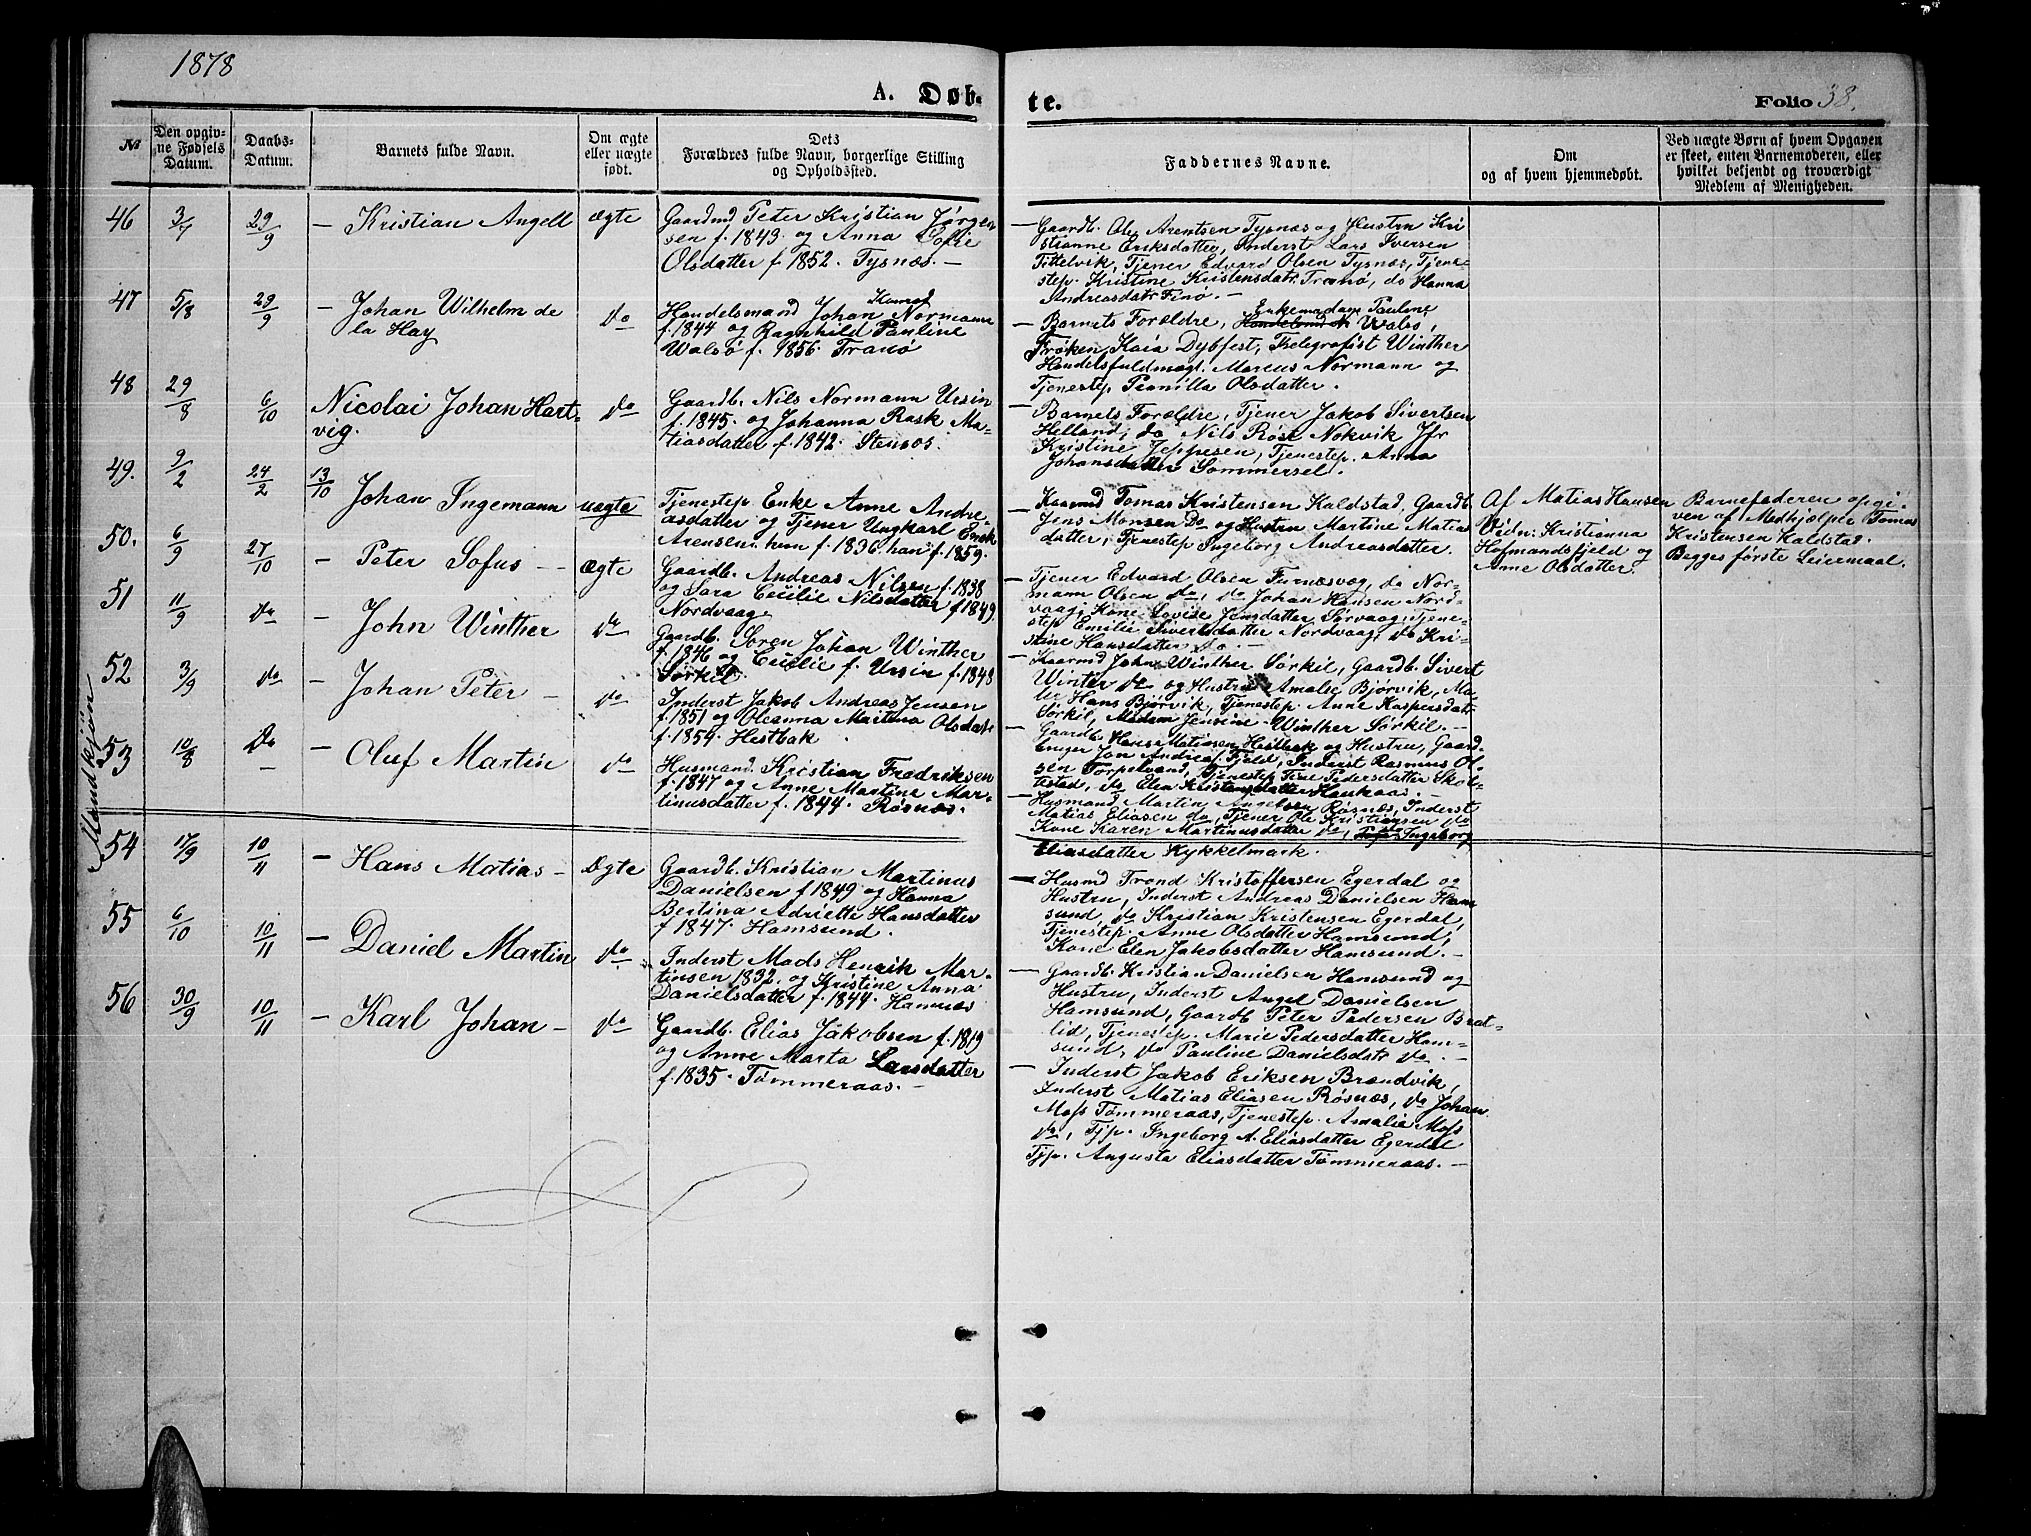 1878
A. Døb-
te.
Folio 38.
№
Den opgiv-
ne Fødsels
Datum.
Daabs-
Datum.
Barnets fulde Navn.
Om ægte
eller uægte
født.
Dets
Forældres fulde Navn, borgerlige Stilling
og Opholdssted.
Faddernes Navne.
Om
og af hvem hjemmedøbt.
Ved uægte Børn af hvem Opgaven
er skeet, enten Barnemoderen, eller
hvilket bekjendt og troværdigt
Medlem af Menigheden.
Mandkjøn
46 3/7 29/9 – Kristian Angell ægte
Gaardmd Peter Kristian Jørgen
sen f. 1843. og Anna Sofie
Olsdatter f. 1852. Tysnæs. –
– Gaardb. Ole Arentsen Tysnæs og Hustru Kri
stianne Eriksdatter, Inderst Lars Iversen
Tittelvik, Tjener Edvard Olsen Tysnæs, Tjene-
step. Kristine Kristensdatr. Tranø, do Hanna
Andreasdatr Finø. –
47 5/8 29/9 – Johan Wilhelm de
la Hay
do
Handelsmand Johan Konrad Normann
f. 1844 og Ragnhild Pauline
Walsö f. 1856. Tranö
– Barnets Forældre, Enkemadam Pauline Walsö,
Frøken Kaia Dybfest, Telegrafist Winther
Handelsfuldmægt. Marcus Normann og
Tjenestep. Pernilla Olsdatter.
48 29/8 6/10 Nicolai Johan Hart-
vig.
do
Gaardb. Nils Normann Ursin
f. 1845. og Johanna Rask Ma-
tiasdatter f. 1842. Stensøs.
– Barnets Forældre, Tjener Jakob Sivertsen
Helland, do Nils Røst Nokvik Jfr
Kristine Jeppesen, Tjenestep. Anna
Johansdatter Sommersel.
49. 9/2 24/2 13/10 Johan Ingemann uægte
Tjenestep Enke Anne Andre-
asdatter og Tjener Ungkarl Enok
Arensen. hun f. 1836. han f. 1859.
– Kaarmd Tomas Kristensen Kaldstad, Gaardb.
Jens Monsen Do og Hustru Martine Matias
datter, Tjenestep Ingeborg Andreasdatter.
Af Matias Hansen
Vidn: Kristianna
Hofmandsfjeld og
Anne Olsdatter.
Barnefaderen opgi-
ven af Medhjælper Tomas
Kristensen Kaldstad.
Begges første Leiermaal.
50. 6/9 27/10 – Peter Sofus – ægte
Gaardb. Andreas Nilsen f. 1838
og Sara Cecilie Nilsdatter f. 1849.
Nordvaag
– Tjener Edvard Olsen Furnæsvag, do Nor-
mann Olsen do, do Johan Hansen Nord-
vaag, Kone Lovise Jensdatter Sørvaag, Tjene-
step Emilie Sivertsdatter Nordvaag, do Kri-
stine Hansdatter do. –
51 11/9 do – John Winther do
Gaardb. Søren Johan Winther
f. 1846 og Cecilie f. Ursin f. 1848
Sørkil
– Kaarmd John Winther Sørkil, Gaardb. Sivert
Winter do og Hustru Amalie Bjørvik, Ma-
ler Hans Bjørvik, Tjenestep. Anne Kaspersdatr
Sørkil, Madam Jensine Winther Sørkil. –
52 3/9 do – Johan Peter – do
Inderst Jakob Andreas Jensen
f. 1851 og Oleanna Martina Olsdatr
f. 1854. Hestbak
– Gaardb. Hans Matiasen Hestbak og Hustru, Gaard-
bruger Jon Andreas. Fjeld, Inderst Rasmus Ol-
sen Torpelvand, Tjenestep Tine Pedersdatter Skot-
stad, do Elen Kristensdatter Haukaas. –
53 10/8 do – Oluf Martin do
Husmand. Kristian Fredriksen
f. 1847 og Anne Martine Mar-
tinusdatter f. 1844. Røsnæs.
– Husmand Martin Angelsen Røsnæs, Inderst
Matias Eliasen do, Tjener Ole Kristiansen do
Kone Karen Martinusdatter do, Ingeborg
Eliasdatter Kykkelmark.
54 17/9 10/11 – Hans Matias – Ægte
Gaardb. Kristian Martinus
Danielsen f. 1849 og Hanna
Bertina Adriette Hansdatter
f. 1847. Hamsund.
– Husmd Trond Kristoffersen Egerdal og
Hustru, Inderst Andreas Danielsen Ham
sund, do Kristian Kristensen Egerdal,
Tjenestep. Anne Olsdatter Hamsund,
Kone Elen Jakobsdatter Hamsund. –
55 6/10 10/11 – Daniel Martin do
Inderst Mads Henrik Mar-
tinsen 1832. og Kristine Anna
Danielsdatter f. 1844. Hamnæs
– Gaardb. Kristian Danielsen Hamsund og
Hustru, Inderst Angel Danielsen
Hamsund, Gaardb Peter Pedersen Brat-
lid, Tjenestep. Marie Pedersdatter Ham-
sund, do Pauline Danielsdatr do. –
56 30/9 10/11 – Karl Johan – do
Gaardb. Elias Jakobsen f. 1819
og Anne Marta Larsdatter
f. 1835. Tømmeraas. –
– Inderst Jakob Eriksen Brændvik,
Inderst Matias Eliasen Røsnæs, do Johan
Moss Tømmeraas, Tjenestep. Amalie Moss
do, Tjp. Ingeborg A. Eliasdatter Egerdal
Tjp. Augusta Eliasdatter Tømmeraas. –